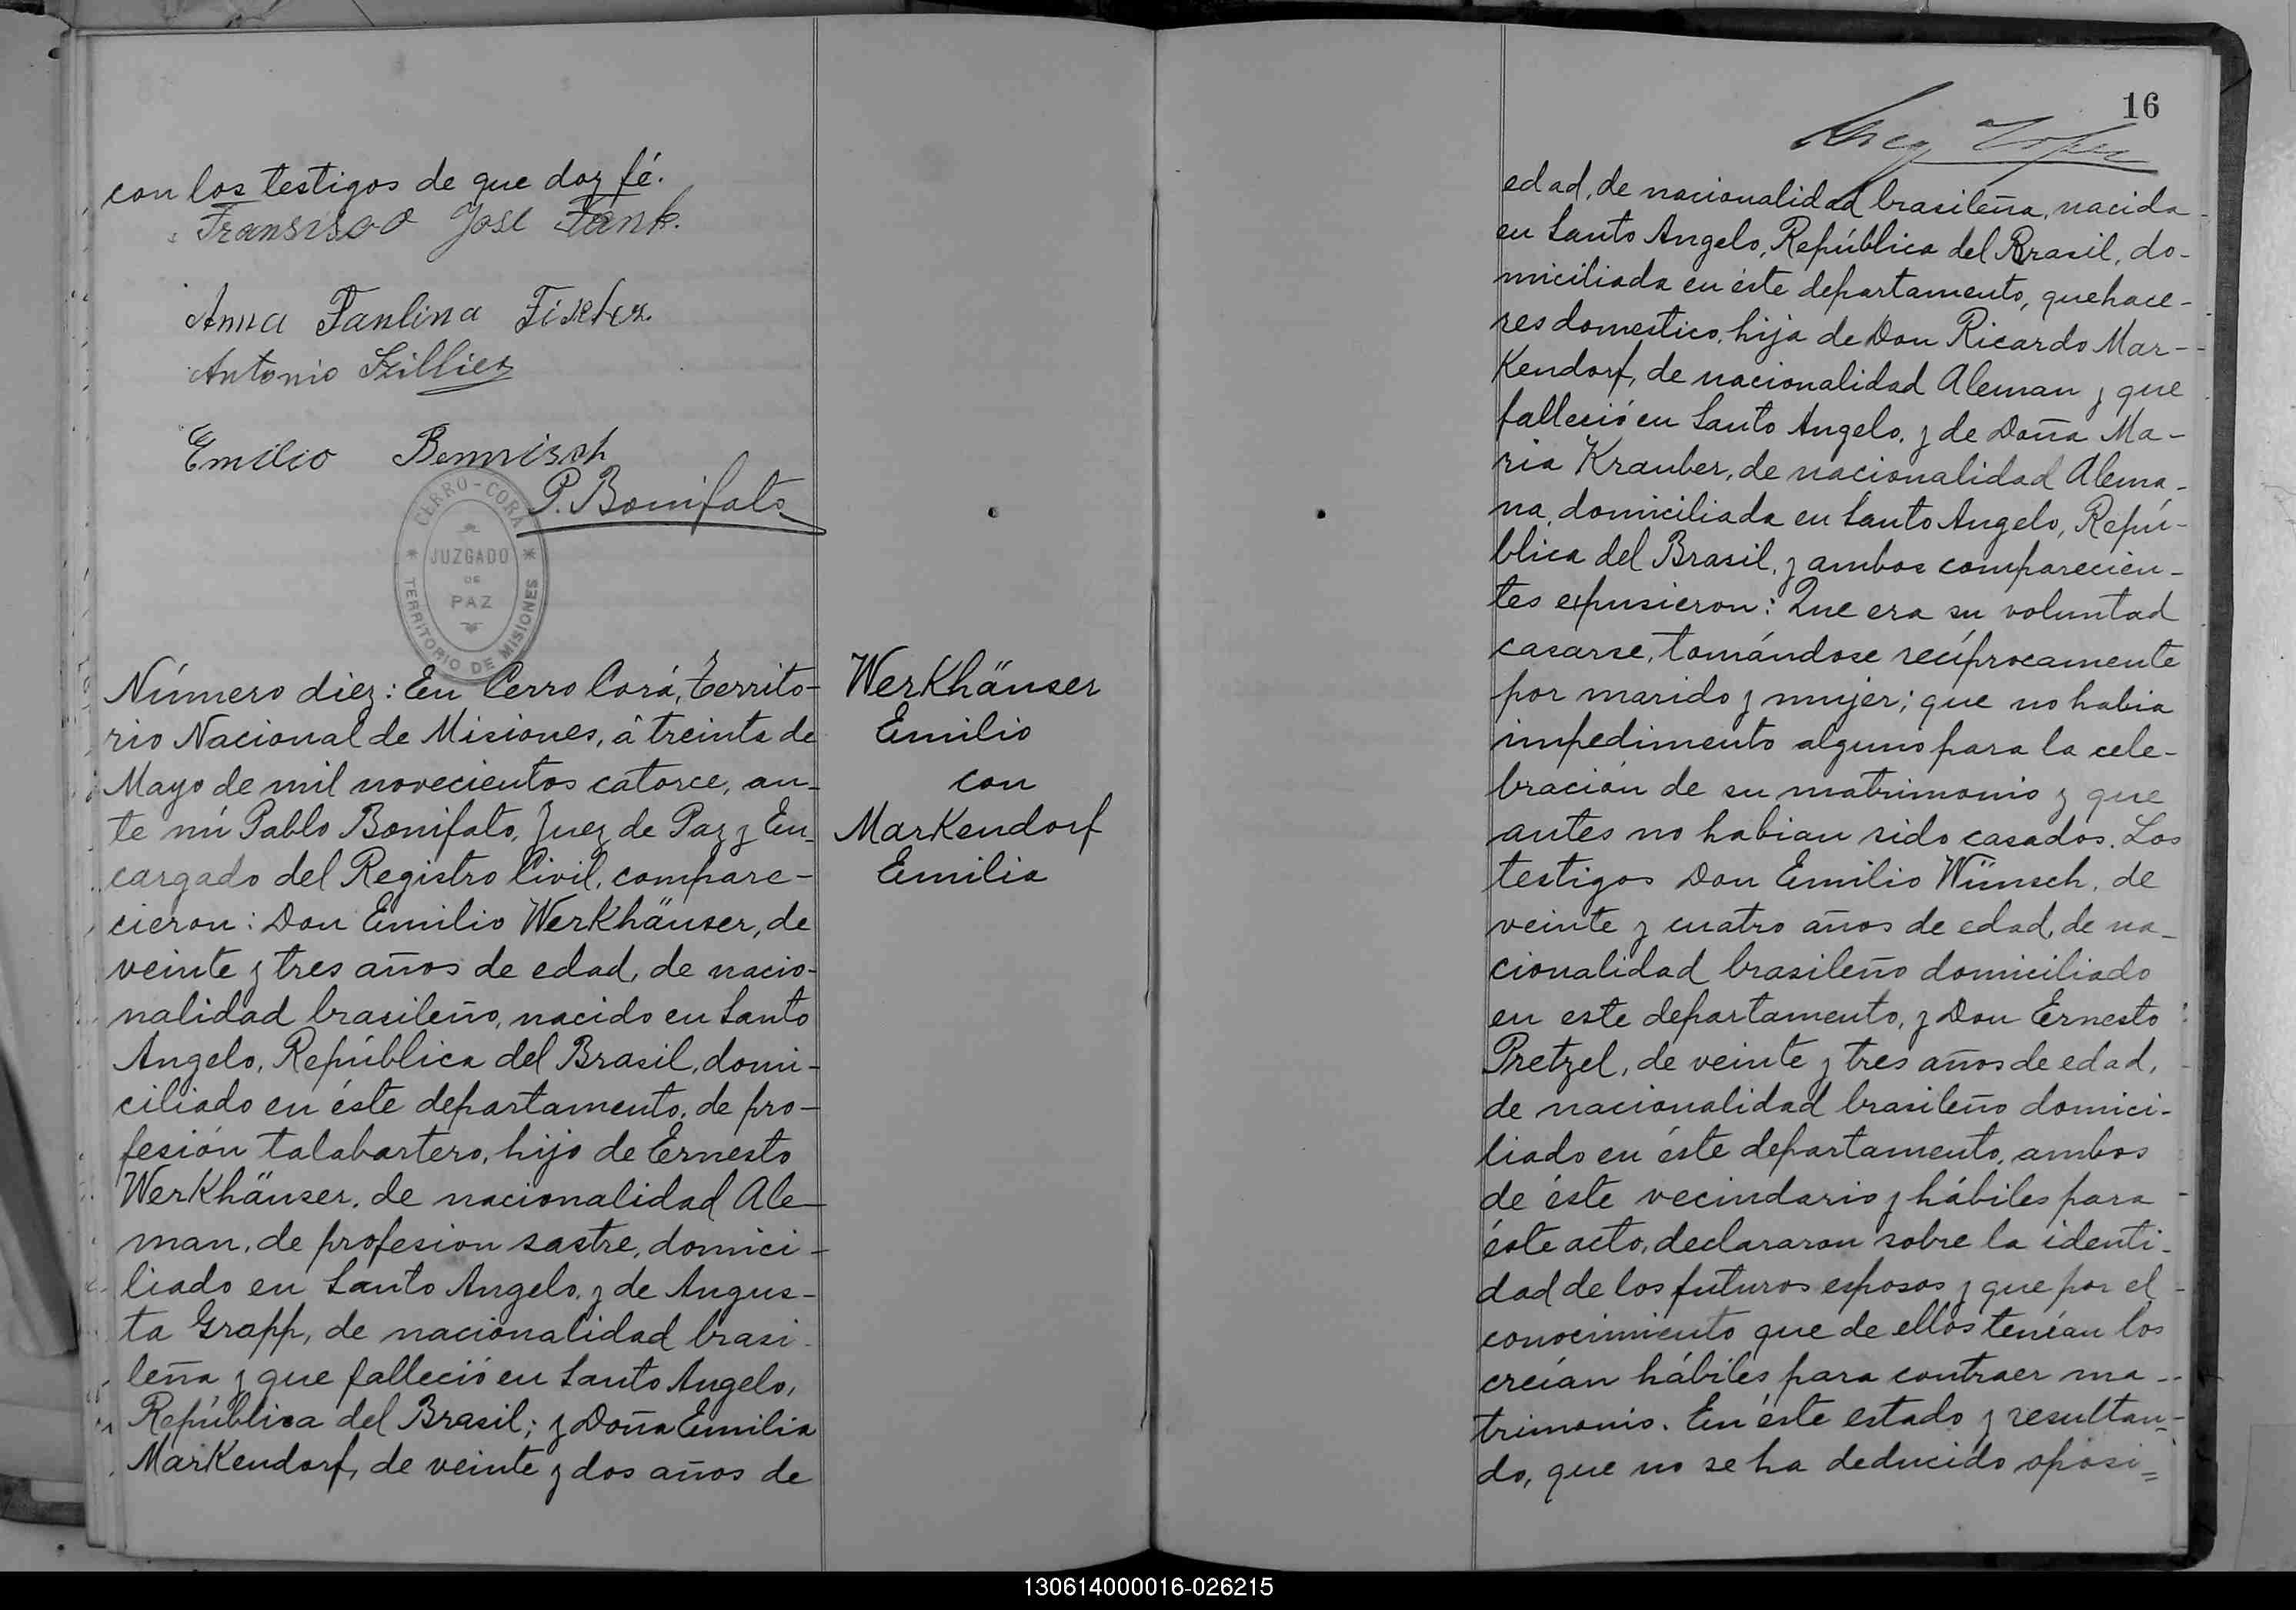 con los testigos de que doy fé.
Fransisco José Fank.
Anna Paulina Fischer.
Antonio
Emilio
P. Bonifato
CERRO-CORÁ
JUZGADO
DE
PAZ
TERRITORIO DE MISIONES
Número diez: En Cerro Corá, territo-
rio Nacional de Misiones, â treinta de
Mayo de mil novecientos catorce, an-
te mi Pablo Bonifato, Juez de Paz y En-
cargado del Registro Civil, compare-
cieron: Don Emilio Werkhäuser, de
veinte y tres años de edad, de nacio-
nalidad brasileño, nacido en Santo
Angelo, República del Brasil, domi-
ciliado en éste departamento, de pro-
fesión talabartero, hijo de Ernesto
Werkhäuser, de nacionalidad Ale-
man, de profesion sastre, domici-
liado en Santo Angelo, y de Augus-
ta Grapp, de nacionalidad brasi-
leña y que falleció en Santo Angelo,
República del Brasil; y Doña Emilia
Markendorf, de veinte y dos años de
Werkhäuser
Emilio
con
Markendorf
Emilia
16
edad, de nacionalidad brasileña, nacida
en Santo Angelo, República del Brasil, do-
miciliada en éste departamento, quehace-
res domestico, hija de Don Ricardo Mar-
Kendorf, de nacionalidad Aleman y que
falleció en Santo Angelo, y de Doña Ma-
ria Krauber, de nacionalidad Alema-
na, domiciliada en Santo Angelo, Repú-
blica del Brasil, y ambos comparecien-
tes expusieron: Que era su voluntad
casarse, tomándose recíprocamente
por marido y mujer; que no habia
impedimento alguno para la cele-
bración de su matrimonio y que
antes no habian sido casados. Los
testigos Don Emilio Wünsch, de
veinte y cuatro años de edad, de na-
cionalidad brasileño domiciliado
en este departamento, y Don Ernesto
Pretzel, de veinte y tres años de edad,
de nacionalidad brasileño domici-
liado en éste departamento, ambos
de éste vecindario y hábiles para
éste acto, declararon sobre la identi-
dad de los futuros esposos y que por el
conocimiento que de ellos tenían los
creían hábiles para contraer ma-
trimonio. En éste estado y resultan-
do, que no se ha deducido oposi=
130614000016-026215